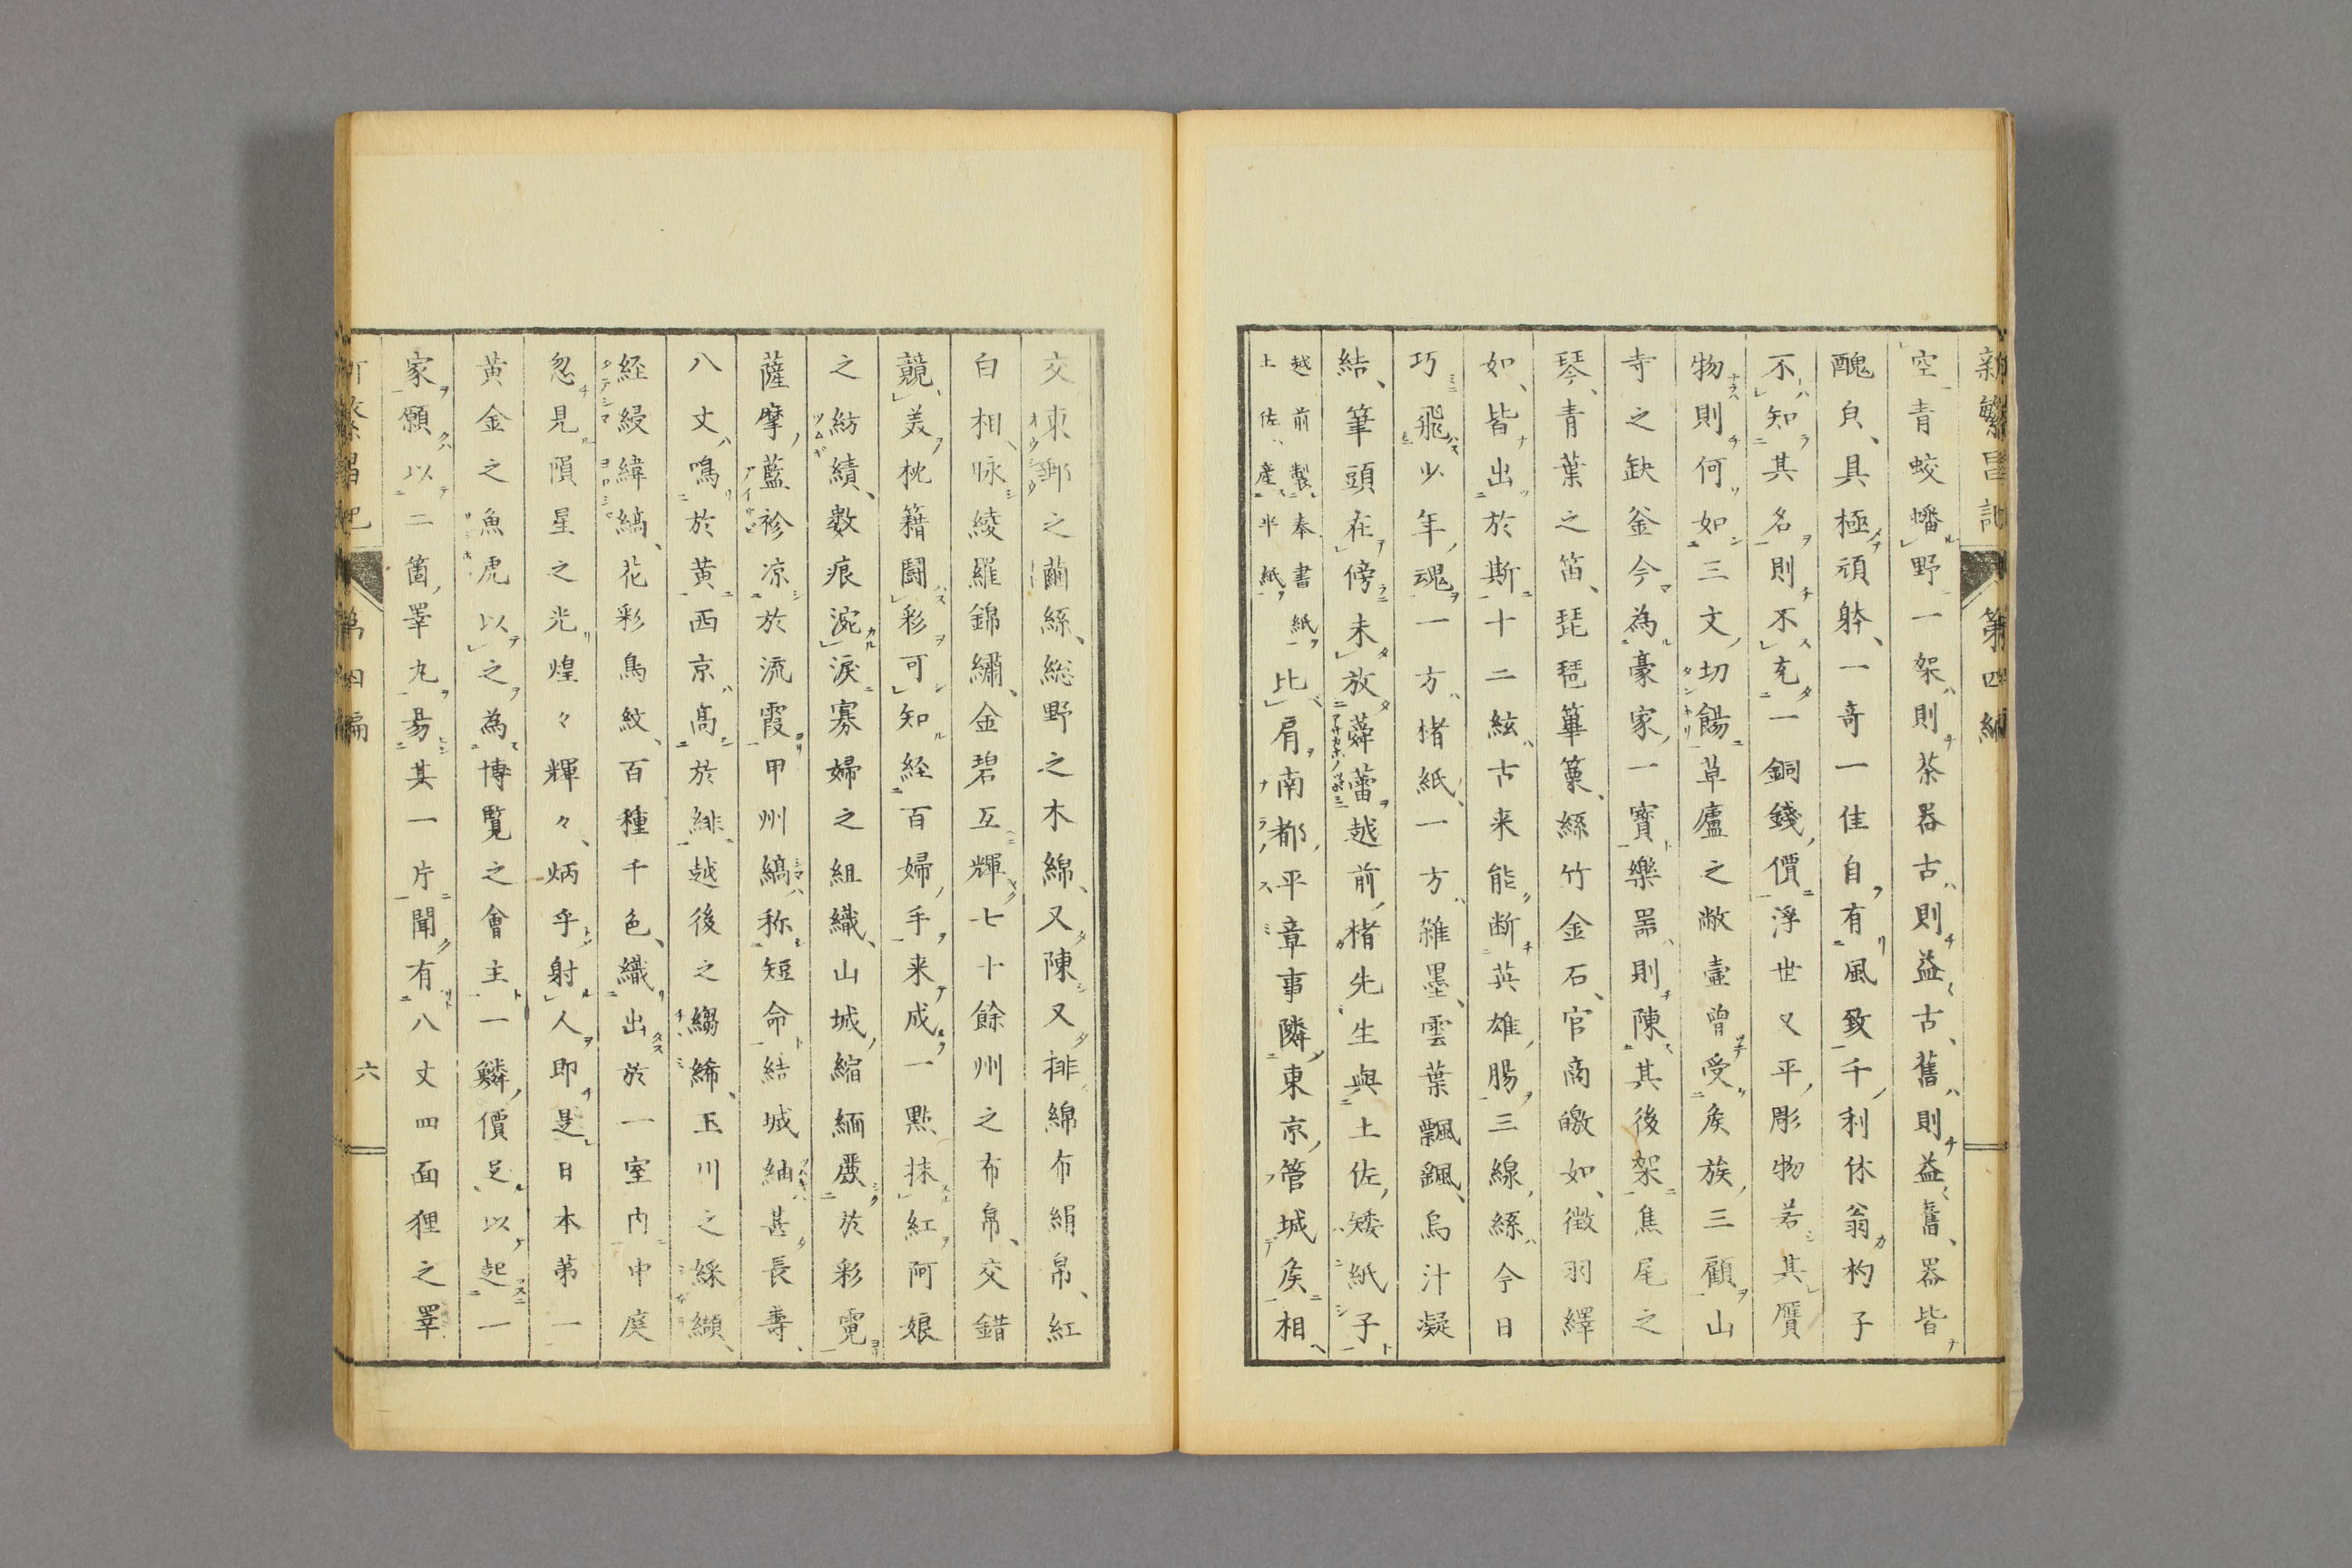 新繁昌記 第四編
空青蛟蟠野一架則茶器古則益古、舊則益舊、器皆
醜皃、具極頑躰、一奇一佳自有風致千利休翁杓子
不知其名則不充一銅錢、價浮世又平、彫物若其贋
物則何如三文切餳草廬之敝壷曽受矦族三顧山
寺之缺釜今為豪家一寳樂器則陳其後架焦尾之
琴、青葉之笛、琵琶篳篥、絲竹金石、官商皦如、徴羽繹
如、皆出於斯十二絃古来能断英雄腸三線絲今日
巧飛少年魂一方楮紙、一方雑墨、雲葉飄颻、烏汁凝
結、筆頭在傍未放蕣蕾越前楮先生與土佐矮紙子
越前製奉書紙
土佐産半紙
比肩南都平章事隣東京管城矦相
交東郷之繭絲、総野之木綿、又陳又排綿布絹帛、紅
白相咏綾羅錦繡、金碧互輝七十餘州之布帛、交錯
競美枕籍鬪彩可知経百婦手来成一點抹紅阿娘
之紡績、數痕涴涙寡婦之組織、山城縮緬蹙於彩霓
薩摩藍衫凉於流霞甲州縞称短命結城紬甚長壽、
八丈鳴於黄西京髙於緋越後之縐絺、玉川之綵纈、
経縵緯縞、花彩鳥紋、百種千色、織出於一室内中庭
忽見隕星之光煌々輝々、炳乎射人即是日本第一
黄金之魚虎以之為博覧之會主一鱗價足以起一
家願以二箇睾丸易其一片聞有八丈四面狸之睾
六